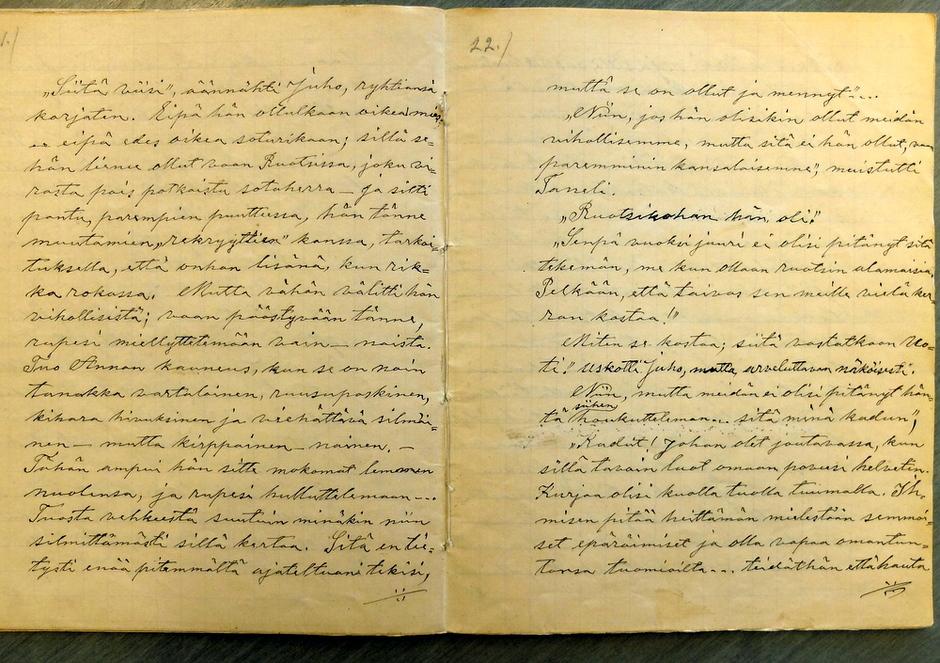 1.)
„Siitä viisi”, äännähti Juho, ryhtiänsä
korjaten. Eipä hän ollutkaan oikea mies,
eipä edes oikea soturikaan; sillä se-
hän lienee ollut vaan Ruotsissa, joku vi-
rasta pois potkaistu sotaherra — ja sitti
pantu, parempien puuttessa, hän tänne
muutamien „rekryyttien” kanssa, tarkoi-
tuksella, että onhan lisänä, kun rik-
ka rokassa. Mutta vähän välitti hän
vihollisistä; vaan päästyvään tänne,
rupesi miellyttelemään vain — naista.
Tuo Annan kauneus, kun se on noin
tanakka vartaloinen, ruusuposkinen,
kihara hivuksinen ja viehättävä silmäi-
nen — mutta kirppainen — nainen. —
Tähän ampui hän sitte mokomat lemmen
nuolensa, ja rupesi hulluttelemaan ---
Tuosta vehkeestä suutuin minäkin niin
silmittömästi sillä kertaa. Sitä en tie-
tysti enää pitemmältä ajateltuani tekisi,
22.)
mutta se on ollut ja mennyt”...
„Niin, jos hän olisikin ollut meidän
vihollisemme, mutta sitä ei hän ollut, vaan
paremminkin kansalaisemme”, muistutti
Taneli.
„Ruotsikohan hän oli!”
„Senpä vuoksi juuri ei olisi pitänyt sitä
tekemän, me kun ollaan ruotsin alamaisia.
Pelkään, että taivas sen meille vielä ker
ran kostaa!”
Miten se kostaa; siitä vastatkaan Vuo-
ti!” uskotti Juho, mutta arveluttavan näköisesti.
Niin, mutta meidän ei olisi pitänyt hän-
siihen
tä houkutteleman... sitä minä kadun”,
„Kadut! Johan olet joutavassa, kun
sillä tavoin luot omaan poveesi helvetin.
Kurjaa olisi kuolla tuolla tuumalla. Ih-
misen pitää heittämän mielestään semmoi-
set epäröimiset ja olla vapaa omantun-
tonsa tuomioilta... tiedäthän että hauta